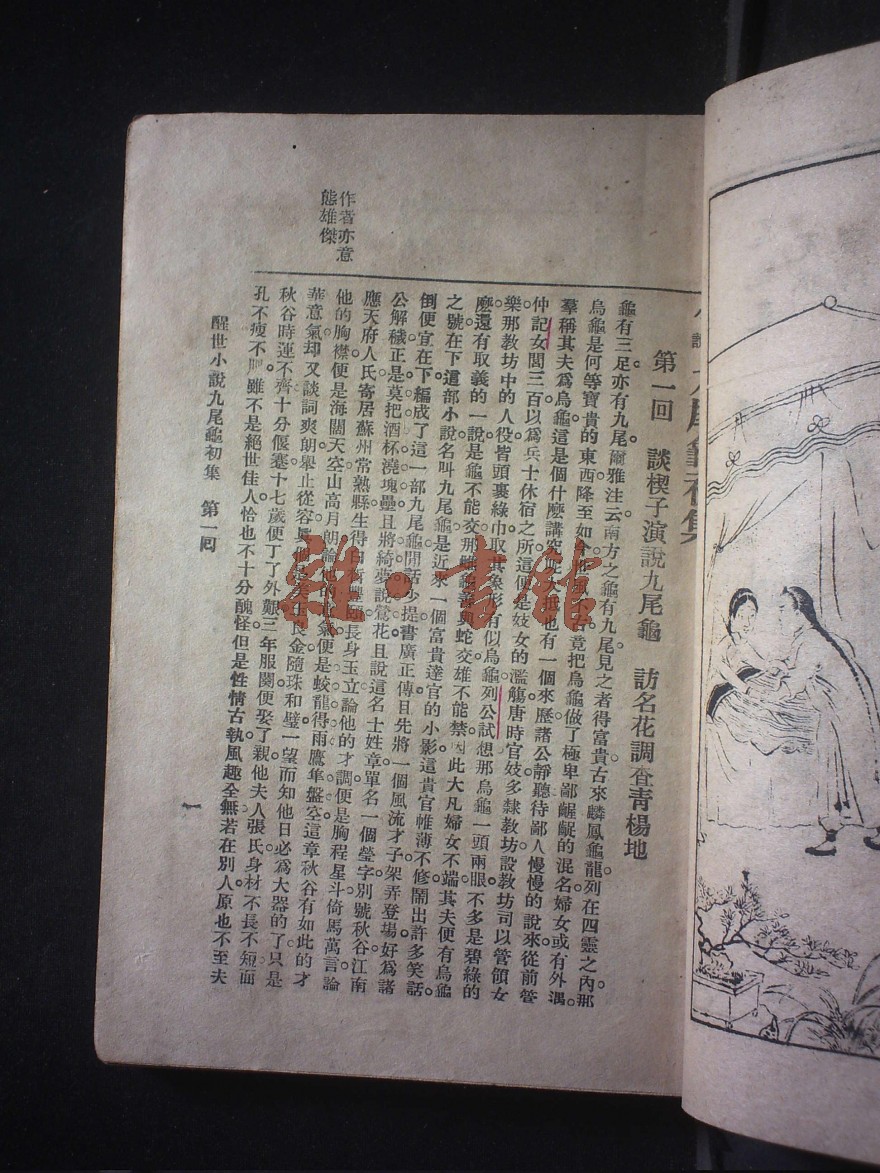 九尾龜初集
第一回　談楔子演說九尾龜　訪名花調查青楊地
龜有三足亦有九尾爾雅注云南方之龜有九尾見之者得富貴古來麟鳳龜龍列在四靈之內。那
烏龜是何等寶貴的東西降至如今世風不古竟把烏龜做了極卑鄙齷齪的混名婦女或有外遇。
羣稱其夫爲烏龜。這是個什麼講究呢大抵也有一個來歷。諸公靜聽待鄙人慢慢的說來從前管
仲記女閭三百以爲兵士休宿之所這便是妓女的濫觴唐時官妓多隸教坊設教坊司以管領女
樂那教坊中的人役皆頭裹綠巾取其象形有似烏龜列公試想那烏龜一頭兩眼。不多是碧綠的
麽還有取義的一說是龜不能交那雌龜善與蛇交雄不能禁因此大凡婦女不端其夫便有烏龜
之號在下這部小說名叫九尾龜是近來一個富貴達官的小影這貴官帷薄不修鬧出許多笑話。
倒便宜在下編成了這一部九尾龜閒話少提書廣正傳且先將一個風流才子架弄登場好爲諸
公解穢正是莫把酒杯澆塊壘且將綺夢說鶯花且說這名士姓章單名一個瑩字別號秋谷江南
應天府人氏寄居蘇州常熟縣生得白皙豐頤長身玉立論他的才調便是胸程星斗倚馬萬言論
他的胸襟便是海闊天空山高月朗論他的意氣便是蛟龍得雨鷹隼盤空這章秋谷有如此的才
華意氣却又談詞爽朗舉止從容真個是美玉良金隨珠和璧一望而知他日必爲大器的了只是
秋谷時運不齊十分偃蹇十七歲便丁了外艱三年服闋便娶了親他夫人張氏身材不長不短面
孔不瘦不肥雖不是絕世佳人恰也不十分醜怪但是性情古執風趣全無若在別人原也不至夫
作者亦意
態雄傑
醒世小說九尾龜初集　第一回
一
雜·書館